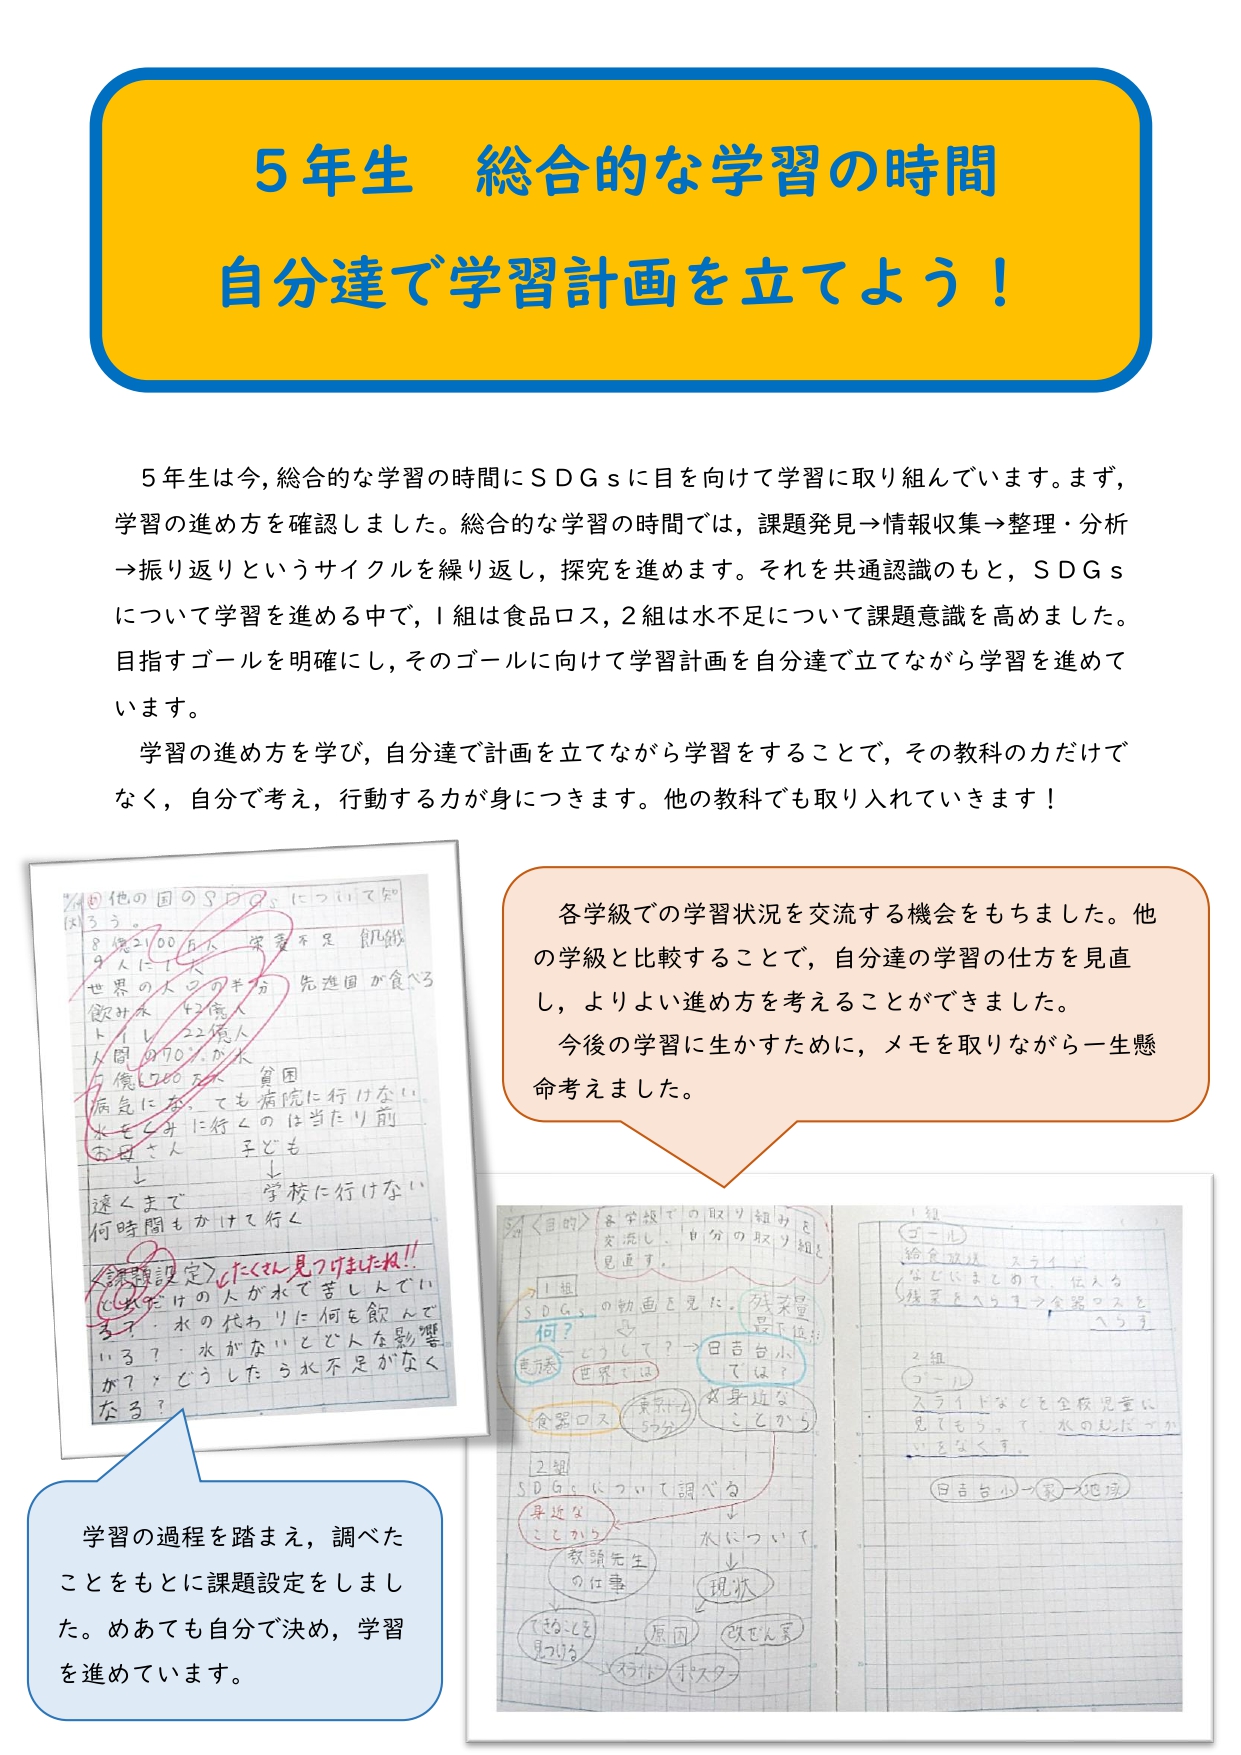 5年生　総合的な学習の時間
自分達で学習計画を立てよう！
5年生は今，総合的な学習の時間にＳＤＧｓに目を向けて学習に取り組んでいます。まず，
学習の進め方を確認しました。総合的な学習の時間では，課題発見→情報収集→整理・分析
→振り返りというサイクルを繰り返し，探究を進めます。それを共通認識のもと，ＳＤＧｓ
について学習を進める中で，1組は食品ロス，2組は水不足について課題意識を高めました。
目指すゴールを明確にし，そのゴールに向けて学習計画を自分達で立てながら学習を進めて
います。
学習の進め方を学び，自分達で計画を立てながら学習をすることで，その教科の力だけで
なく，自分で考え，行動する力が身につきます。他の教科でも取り入れていきます！
他の国のSDGsについて知
ろう。
8億2100万人　栄養不足　飢餓
9人に1人
世界の人口の半分　先進国が食べる
飲み水　42億人
トイレ　22億人
人間の70％が水
貧困
病気になっても病院に行けない
水をくみに行くのは当たり前
お母さん　子ども
↓　↓
遠くまで　学校に行けない
何時間もかけて行く
〈課題設定〉たくさん見つけましたね!!
どれだけの人が水で苦しんでい
る？・水の代わりに何を飲んで
いる？・水がないとどんな影響
が？・どうしたら水不足がなく
なる？
学習の過程を踏まえ，調べた
ことをもとに課題設定をしまし
た。めあても自分で決め，学習
を進めています。
各学級での学習状況を交流する機会をもちました。他
の学級と比較することで，自分達の学習の仕方を見直
し，よりよい進め方を考えることができました。
今後の学習に生かすために，メモを取りながら一生懸
命考えました。
〈目的〉各学級での取り組みを
交流し、自分の取り組を
見直す。
1組
SDGsの動画を見た。残菜量
何？
どうして？→日吉台小
では？
世界では
食品ロス
東京ドーム
5つ分
身近な
ことから
2組
SDGsについて調べる
身近な
ことから
水について
↓
教頭先生
の仕事
現状
できることを
見つける
原因
改ぜん案
スライド
ポスター
1組
ゴール
給食放送　スライド
などにまとめて、伝える
残菜をへらす→食品ロスを
へらす
2組
ゴール
スライドなどを全校児童に
見てもらって、水のむだづか
いをなくす。
日吉台小→家→地域